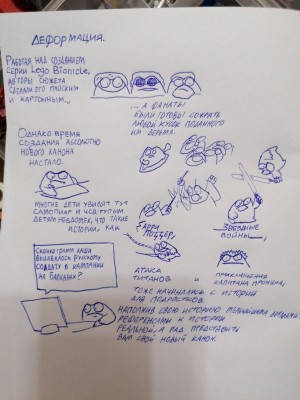 Деформация.
Работая над созданием
серии Lego Bionicle,
авторы сюжета
сделали его плоским
и картонным...
...а фанаты
были готовы сожрать
любой кусок поданного
им дерьма.
Однако время
создания абсолютно
нового канона
настало.
Многие дети увидят тут
самопиар и
детям невдомёк, что такие
истории, как
Гарри
Поттер,
Звездные
войны,
Атака
титанов
и
приключения
капитана Врунгеля,
тоже начинались с историй
для подростков.
Сколько грамм каши
выдавалось русскому
солдату в кампании
на Балканах?
Наполнив свою историю
референсами к истории
реальной, я рад представить
вам свой новый канон.